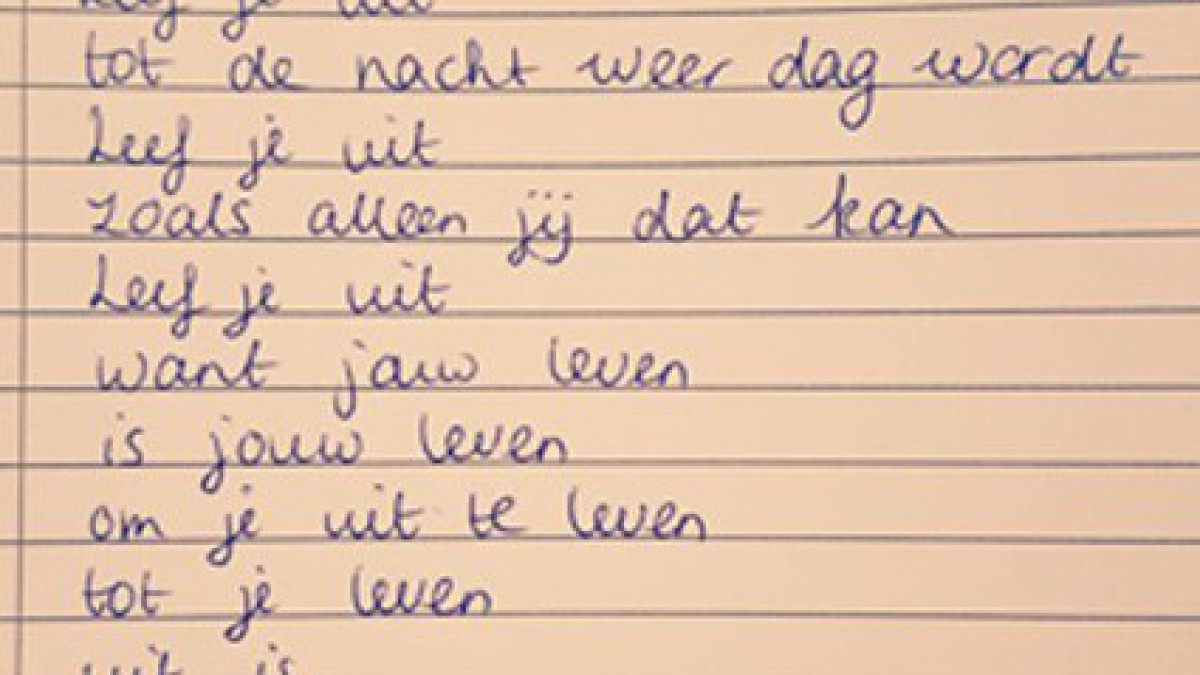 Leef je uit
tot de nacht weer dag wordt
Leef je uit
zoals alleen jij dat kan
Leef je uit
want jouw leven
is jouw leven
om je uit te leven
tot je leven
uit is